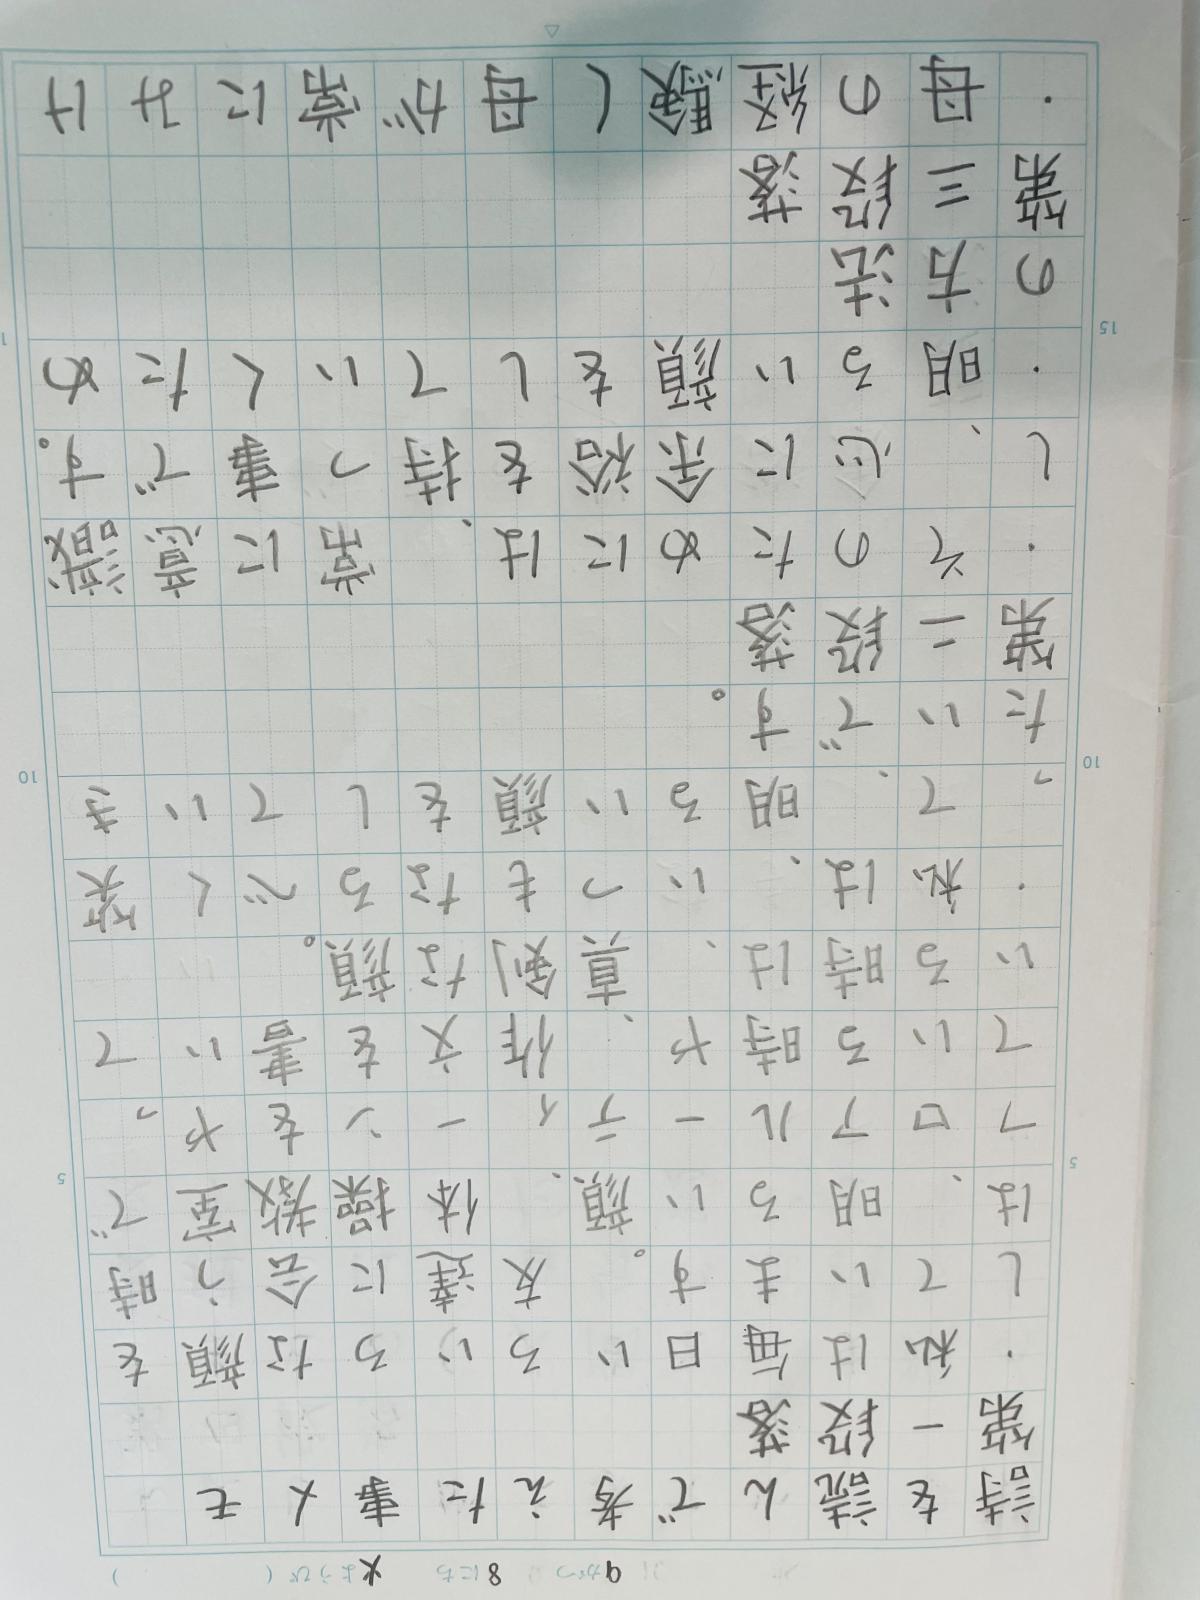 9がつ 8にち 火ようび ( )
詩を読んで考えた事メモ
第一段落
・私は毎日いろいろな顔を
しています。友達に会う時
は、明るい顔、体操教室で
フロアルーティーンをやっ
ている時や、作文を書いて
いる時は、真剣な顔。
・私は、いつもなるべく笑
って、明るい顔をしていき
たいです。
第二段落
・そのためには、常に意識
し、心に余裕を持つ事です。
・明るい顔をしていくため
の方法
第三段落
・母の経験(母が常にみけ
5
10
15
5
10